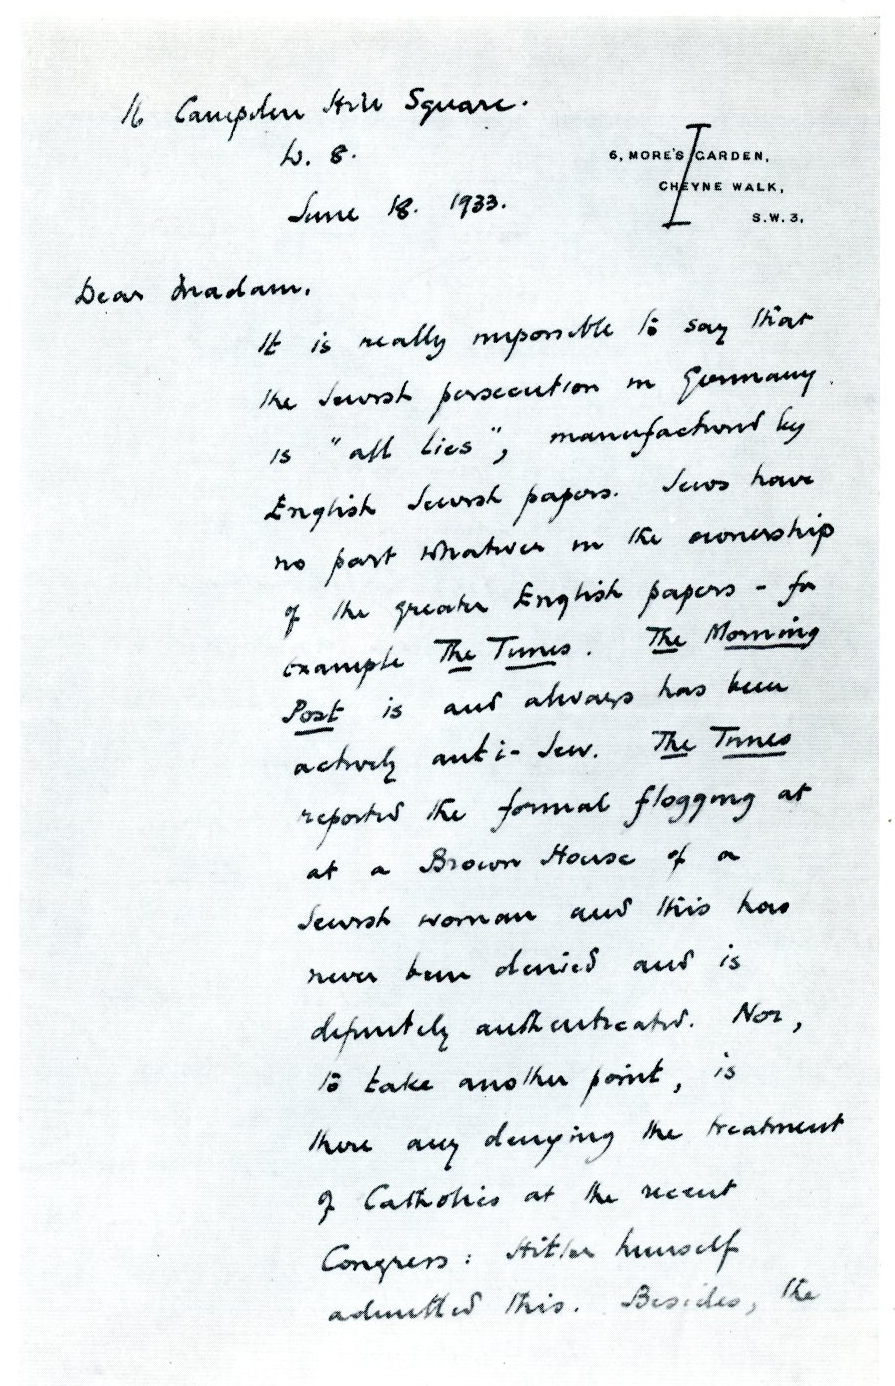 16 Campden Hill Square.
W. 8.
June 18. 1933.
6, MORE'S GARDEN,
CHEYNE WALK,
S.W. 3.
Dear Madam.
It is really impossible to say that
the Jewish persecution in Germany
is "all lies", manufactured by
English Jewish papers. Jews have
no part whatever in the ownership
of the greater English papers - for
example The Times. The Morning
Post is and always has been
actively anti-Jew. The Times
reported the formal flogging at
at a Brown House of a
Jewish woman and this has
never been denied and is
definitely authenticated. Nor,
to take another point, is
there any denying the treatment
of Catholics at the recent
Congress: Hitler himself
admitted this. Besides, the